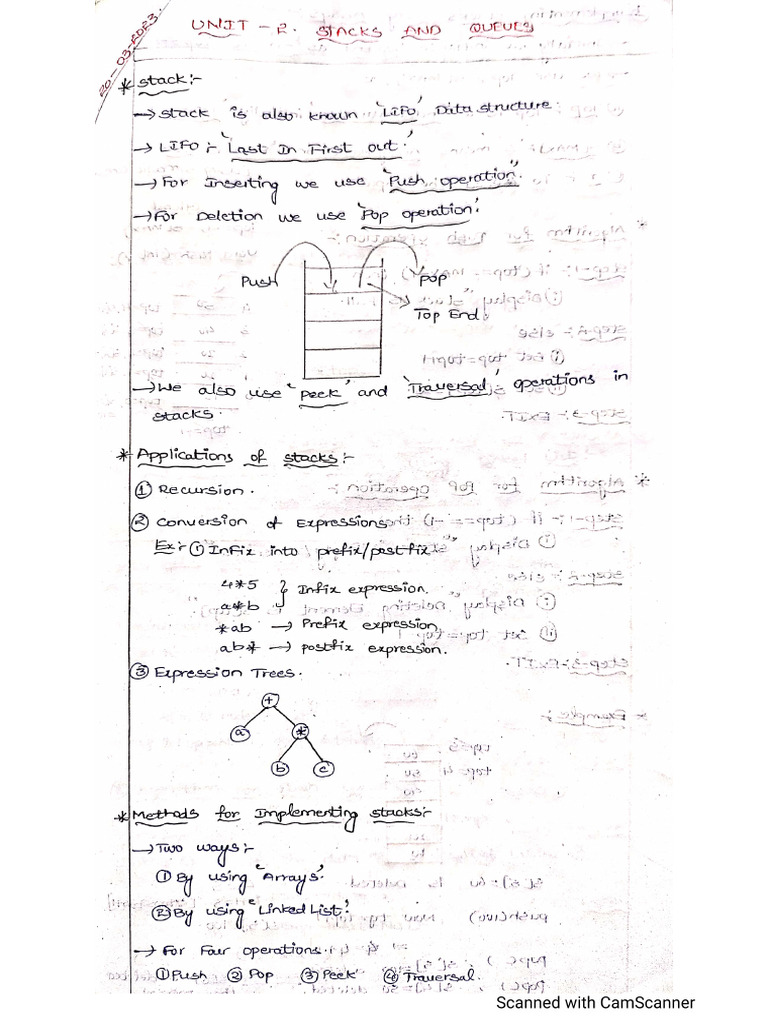 20-03-2023.
UNIT - 2. STACKS AND QUEUES
* Stack:-
→ Stack is also known 'LIFO' Data structure.
→ LIFO:- 'Last In First out.'
→ For Inserting we use "Push operation".
→ For Deletion we use 'Pop operation'.
Push
Pop
Top End.
→ We also use 'Peek' and 'Traversal' operations in
stacks.
* Applications of stacks:-
① Recursion.
② Conversion of Expressions
Ex:- ① Infix into prefix/postfix
4*5 } Infix expression.
a*b
*ab → Prefix expression
ab* → postfix expression.
③ Expression Trees.
+
a *
b c
* Methods for Implementing stacks:-
→ Two ways:-
① By using 'Arrays'.
② By using 'Linked List'.
→ For Four operations.
① Push ② Pop ③ Peek ④ Traversal.
Scanned with CamScanner